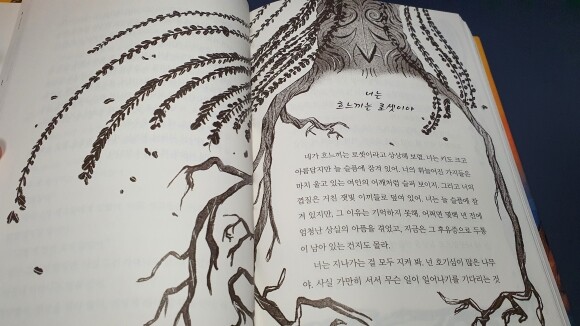 너는
흐느끼는 로젯이야
네가 흐느끼는 로젯이라고 상상해 보렴. 너는 키도 크고
아름답지만 늘 슬픔에 잠겨 있어. 너의 휘늘어진 가지들은
마치 울고 있는 여인의 어깨처럼 슬퍼 보이지. 그리고 너의
껍질은 거친 잿빛 이끼들로 덮여 있어. 너는 늘 슬픔에 잠
겨 있지만, 그 이유는 기억하지 못해. 어쩌면 몇백 년 전에
엄청난 상실의 아픔을 겪었고, 지금은 그 후유증으로 두통
이 남아 있는 건지도 몰라.
너는 지나가는 걸 모두 지켜 봐. 넌 호기심이 많은 나무
야. 사실 가만히 서서 무슨 일이 일어나기를 기다리는 것